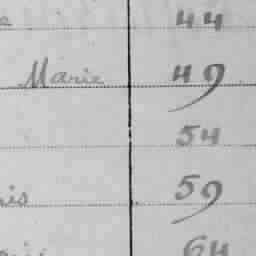 44
Marie 49
54
59
64